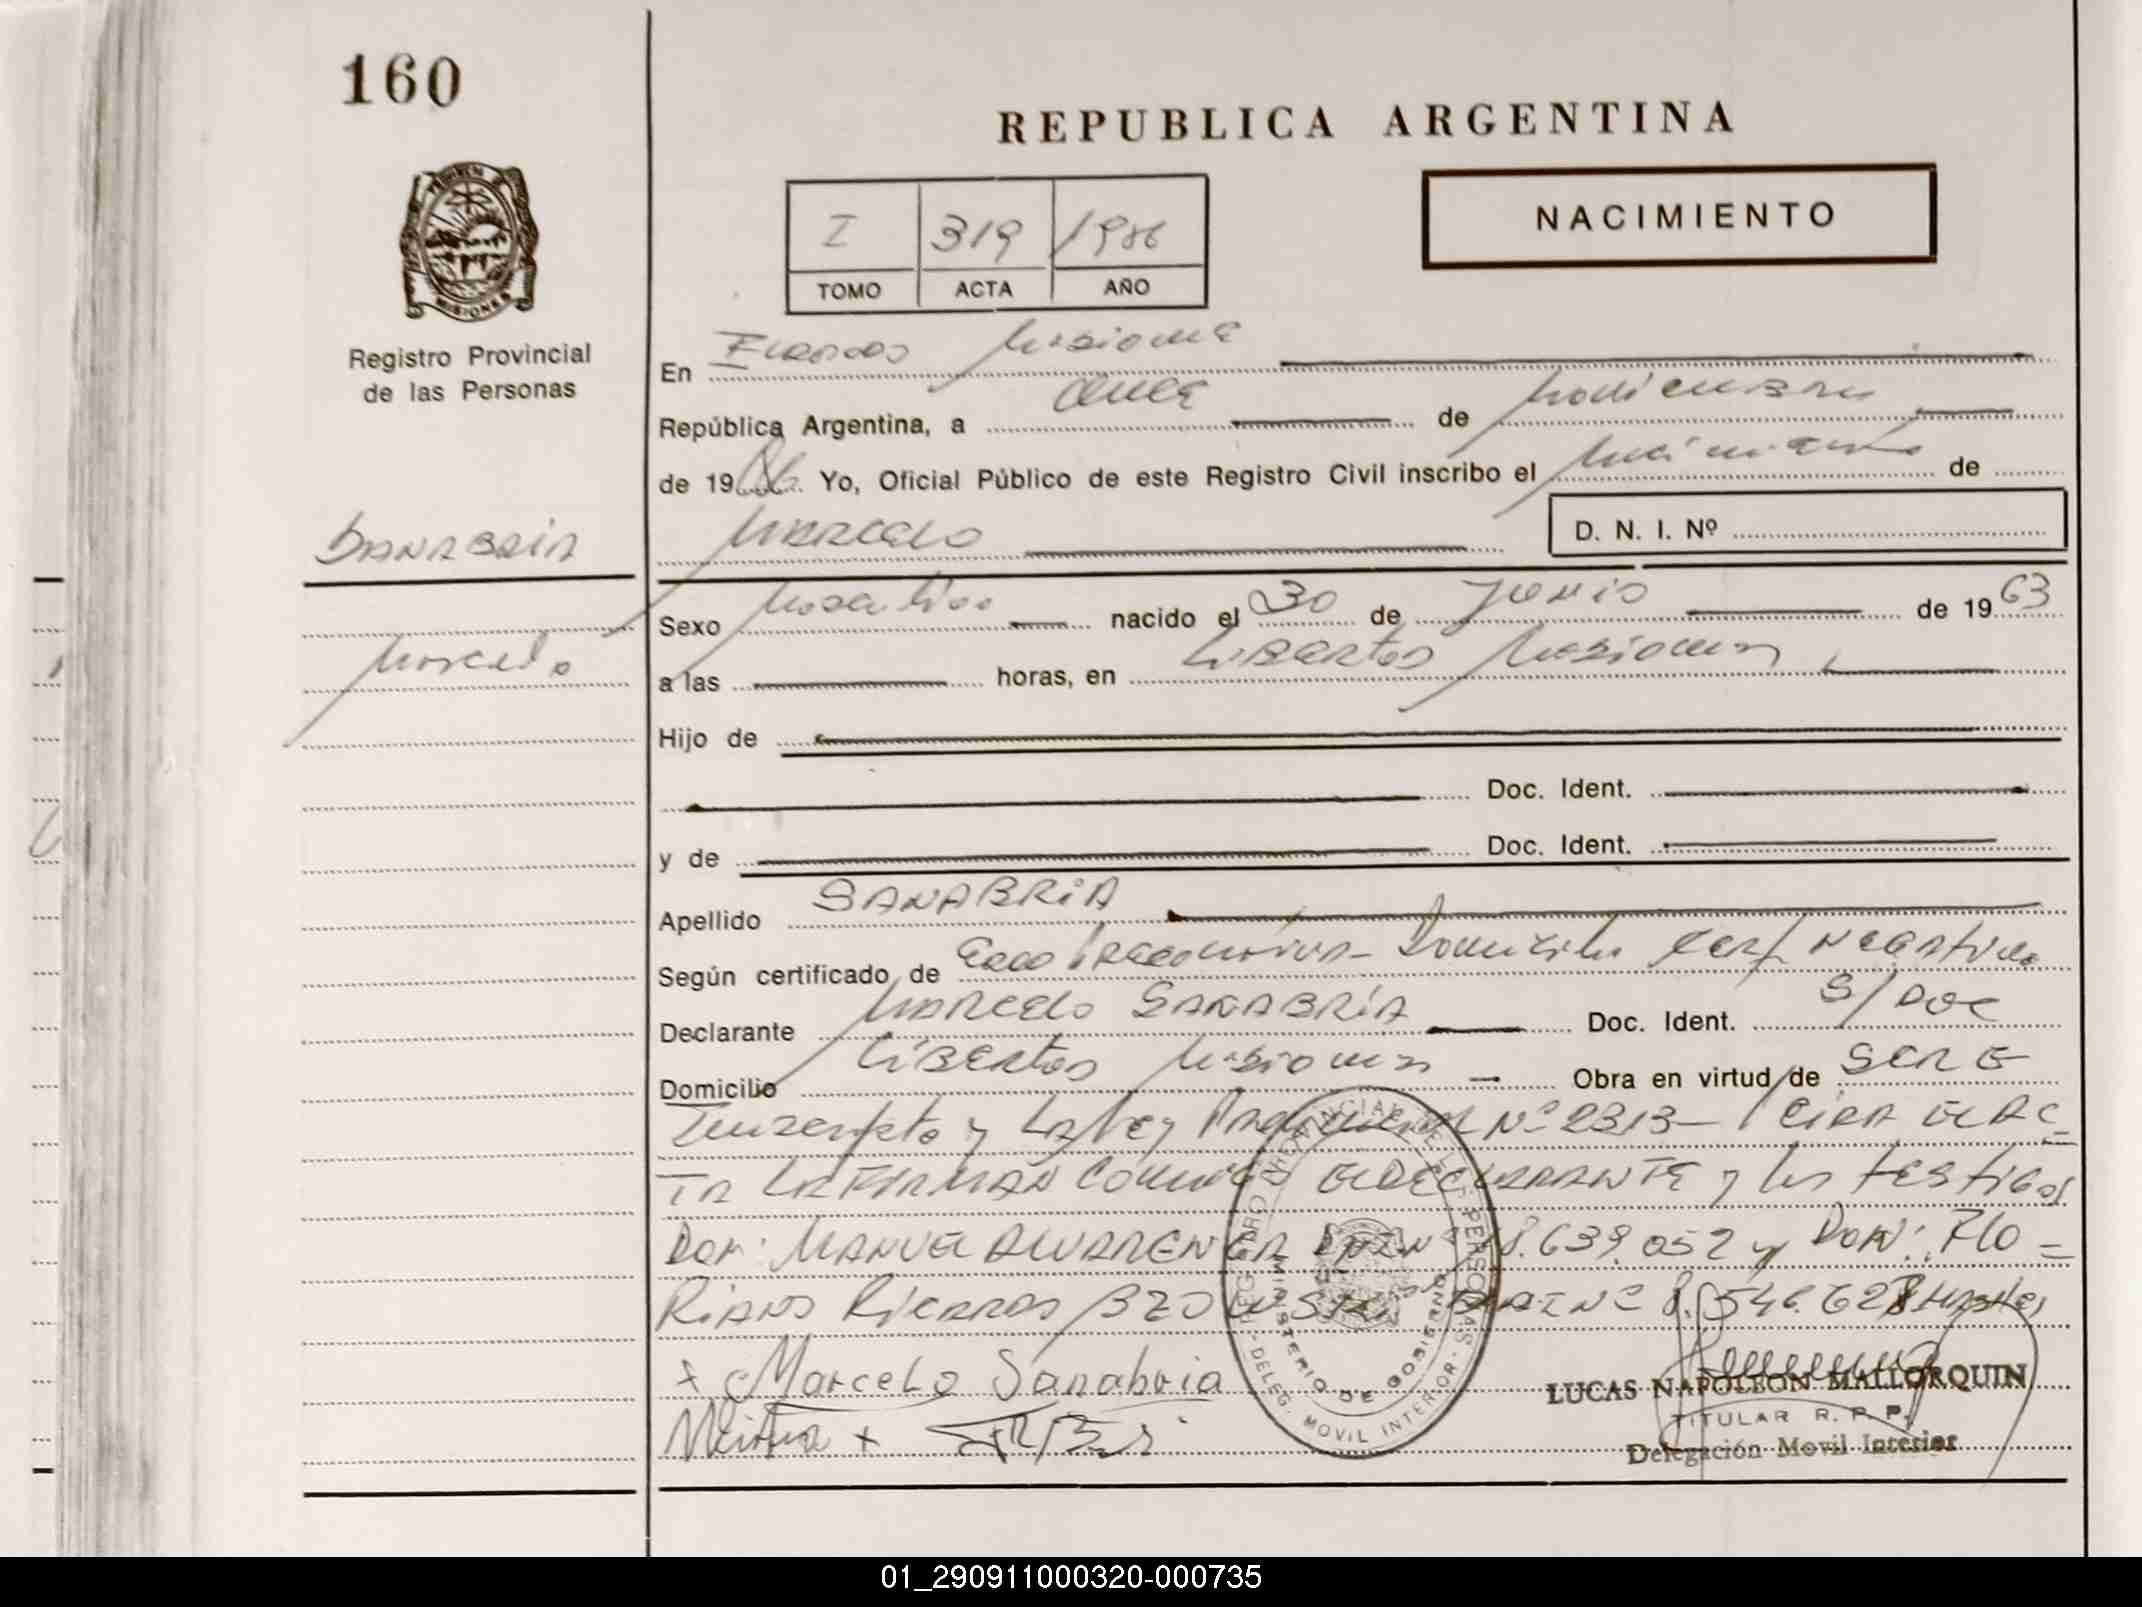 160
REPUBLICA ARGENTINA
NACIMIENTO
I 319 1986
TOMO ACTA AÑO
Registro Provincial
de las Personas
En Misiones
República Argentina, a once de noviembre
de 1986 Yo, Oficial Público de este Registro Civil inscribo el nacimiento de
Marcelo D. N. I. Nº
SANABRIA
Marcelo
Sexo Masculino nacido el 30 de Junio de 1963
a las horas, en Libertad Misiones
Hijo de
Doc. Ident.
y de Doc. Ident.
Apellido SANABRIA
Según certificado de Domicilio Cert Negativo
Declarante MARCELO SANABRIA Doc. Ident. S/Doc
Domicilio Libertad Misiones Obra en virtud de SER E
Inscripto y La Ley Nº 2313 - LEIDA EL AC
TA LA FIRMAN CONMIGO EL DECLARANTE y los testigos
DON: MANUEL ALVARENGA DNI Nº 8.639.052 y DON: FLO=
RIANO RICARDO DNI Nº 8.546.628
Marcelo Sanabria
REGISTRO PROVINCIAL DE LAS PERSONAS
MINISTERIO DE GOBIERNO
DELEG. MOVIL INTERIOR
LUCAS NAPOLEON MALLORQUIN
TITULAR R. P. P.
Delegación Movil Interior
01_290911000320-000735